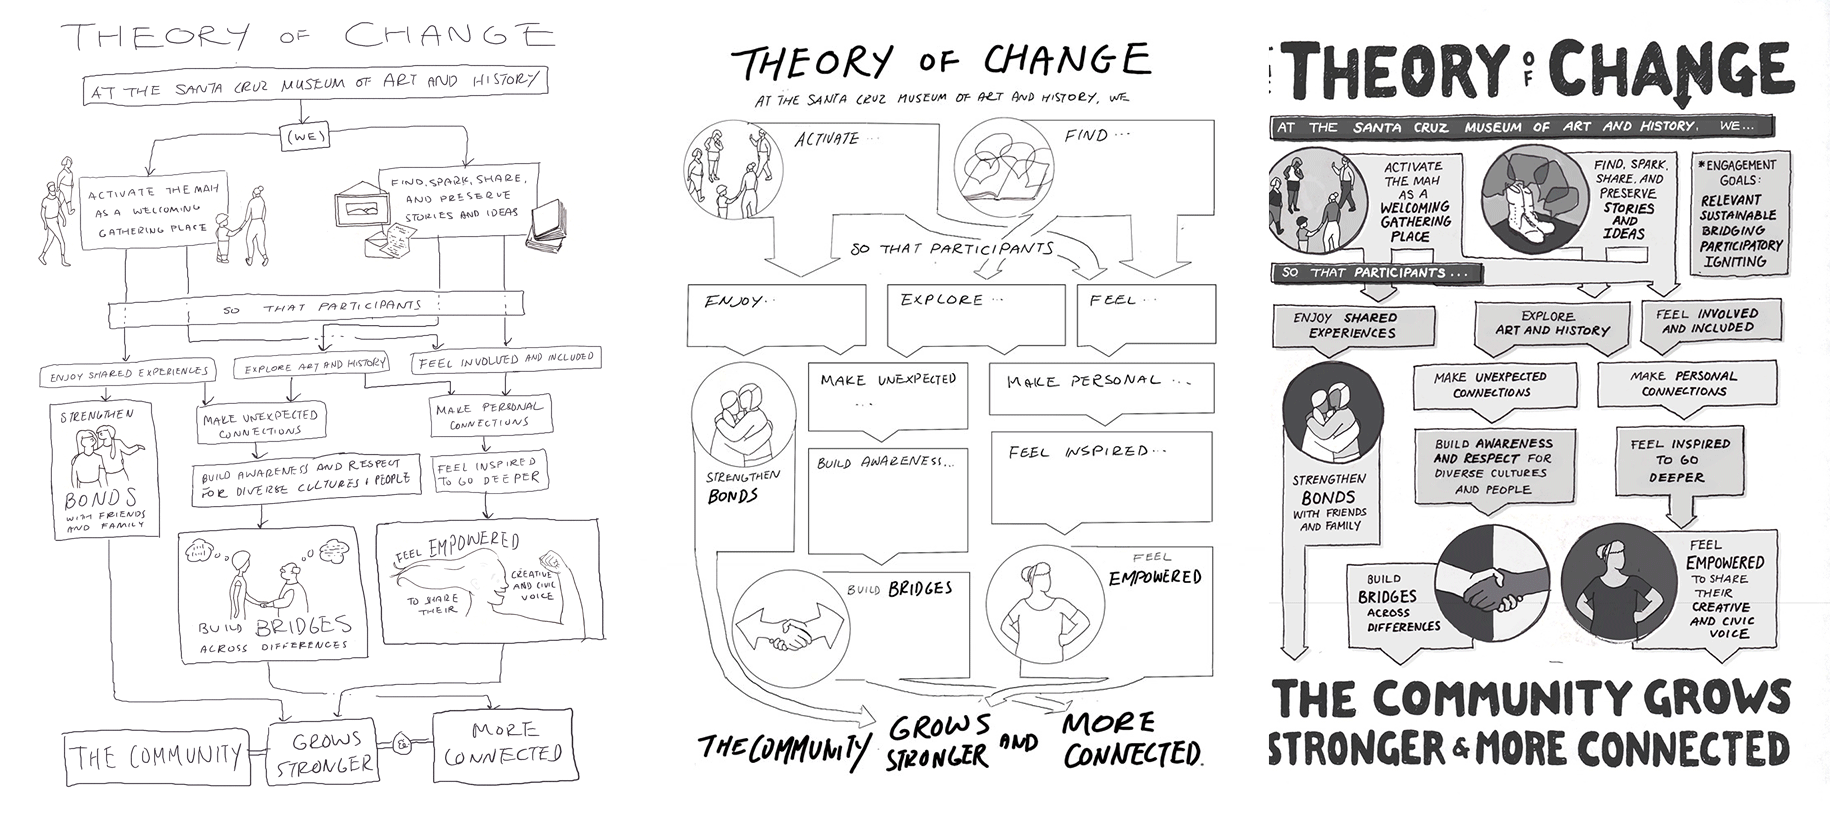 THEORY OF CHANGE
AT THE SANTA CRUZ MUSEUM OF ART AND HISTORY
(WE)
ACTIVATE THE MAH
AS A WELCOMING
GATHERING PLACE
FIND, SPARK, SHARE,
AND PRESERVE
STORIES AND IDEAS
SO THAT PARTICIPANTS
ENJOY SHARED EXPERIENCES
EXPLORE ART AND HISTORY
FEEL INVOLVED AND INCLUDED
STRENGTHEN
BONDS
WITH FRIENDS
AND FAMILY
MAKE UNEXPECTED
CONNECTIONS
MAKE PERSONAL
CONNECTIONS
BUILD AWARENESS AND RESPECT
FOR DIVERSE CULTURES & PEOPLE
FEEL INSPIRED
TO GO DEEPER
BUILD BRIDGES
ACROSS DIFFERENCES
FEEL EMPOWERED
TO SHARE
THEIR
CREATIVE
AND CIVIC
VOICE
THE COMMUNITY
GROWS
STRONGER
&
MORE
CONNECTED
THEORY OF CHANGE
AT THE SANTA CRUZ MUSEUM OF ART AND HISTORY, WE
ACTIVATE ...
FIND ...
SO THAT PARTICIPANTS
ENJOY ..
EXPLORE ...
FEEL ..
MAKE UNEXPECTED
...
MAKE PERSONAL ...
STRENGTHEN
BONDS
BUILD AWARENESS...
FEEL INSPIRED...
BUILD BRIDGES
FEEL
EMPOWERED
THE COMMUNITY
GROWS
STRONGER
AND
MORE
CONNECTED.
THEORY OF CHANGE
AT THE SANTA CRUZ MUSEUM OF ART AND HISTORY, WE...
ACTIVATE
THE MAH
AS A
WELCOMING
GATHERING
PLACE
FIND, SPARK,
SHARE, AND
PRESERVE
STORIES
AND
IDEAS
*ENGAGEMENT
GOALS:
RELEVANT
SUSTAINABLE
BRIDGING
PARTICIPATORY
IGNITING
SO THAT PARTICIPANTS...
ENJOY SHARED
EXPERIENCES
EXPLORE
ART AND HISTORY
FEEL INVOLVED
AND INCLUDED
MAKE UNEXPECTED
CONNECTIONS
MAKE PERSONAL
CONNECTIONS
STRENGTHEN
BONDS
WITH FRIENDS
AND FAMILY
BUILD AWARENESS
AND RESPECT FOR
DIVERSE CULTURES
AND PEOPLE
FEEL INSPIRED
TO GO
DEEPER
BUILD
BRIDGES
ACROSS
DIFFERENCES
FEEL
EMPOWERED
TO SHARE
THEIR
CREATIVE
AND CIVIC
VOICE
THE COMMUNITY GROWS
STRONGER & MORE CONNECTED